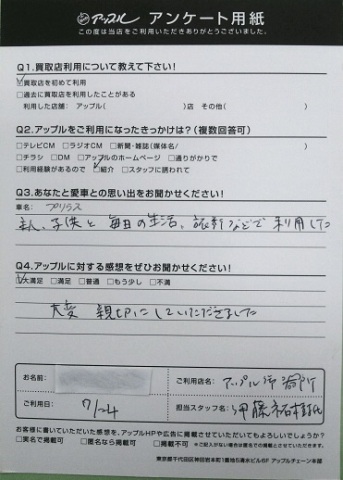 アップル アンケート用紙
この度は当店をご利用いただきありがとうございました。
Q1.買取店利用について教えて下さい!
☑買取店を初めて利用
□過去に買取店を利用したことがある
利用した店舗: アップル( )店 その他( )
Q2.アップルをご利用になったきっかけは?(複数回答可)
□テレビCM □ラジオCM □新聞・雑誌(媒体名/ )
□チラシ □DM □アップルのホームページ □通りがかりで
□利用経験があるので ☑紹介 □スタッフに誘われて
Q3.あなたと愛車との思い出をお聞かせください!
車名: プリウス
主人、子供と毎日の生活、旅行などで利用した
Q4.アップルに対する感想をぜひお聞かせください!
☑大満足 □満足 □普通 □もう少し □不満
大変 親切にしていただきました
お名前:
ご利用店名: アップル
ご利用日: 7/24
担当スタッフ名: 伊藤
お客様に書いていただいた感想を、アップルHPや広告に掲載させていただいてもよろしいでしょうか?
□実名で掲載可 □匿名なら掲載可 □掲載不可 ※ご記入がない場合は匿名での掲載とさせていただきます。
東京都千代田区神田岩本町1番地5清水ビル6F アップルチェーン本部